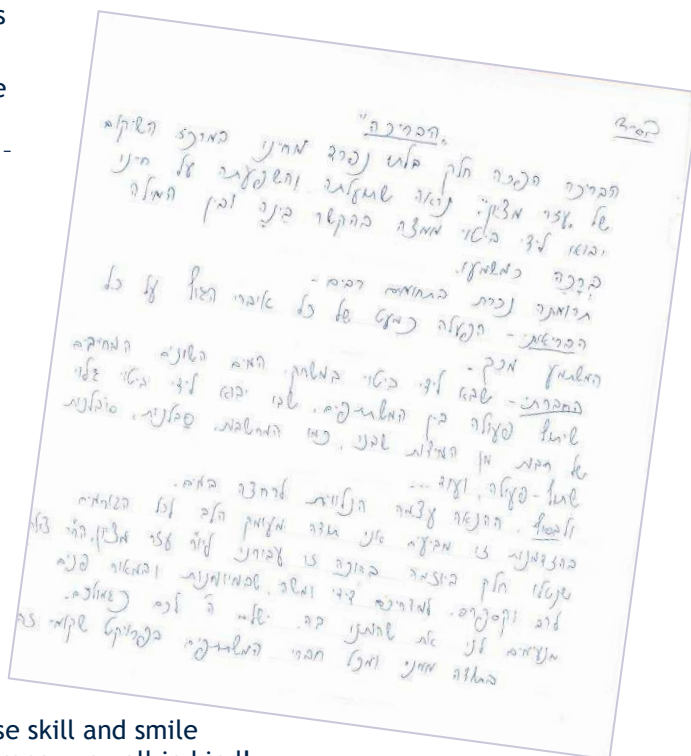 s
e
-
בס״ד
"הבריכה"
הבריכה הפכה חלק בלתי נפרד מחיינו במרכז השיקום
של "עזר מציון". נראה שתועלתה והשפעתה על חיינו
יבואו לידי ביטוי ממצה בהקשר בינה ובין המילה
בְּרָכָה כמשמעו.
תרומתה ניכרת בתחומים רבים -
הבריאותי - הפעלה כמעט של כל איברי הגוף על כל
המשתמע מכך -
החברתי - שבא לידי ביטוי במשחקי המים השונים המחייבים
שיתוף פעולה בין המשתתפים, שבו יבוא לידי ביטוי גלוי
של רבות מן המידות שבנו, כמו המחשבה, סַבלנות, סובלנות
שתוף-פעולה, ועוד...
ולבסוף, ההנאה עצמה הנלווית לרחצה במים.
בהזדמנות זו מביעה אני תודה מעומק הלב לכל הגורמים
שנטלו חלק ביוזמה ברוכה זו עבורנו, ליו״ר עזר מציון, הרב
לרב וקספרס. למדריכים דידי ומשה, שבמיומנות ובמאור פנים
מנעימים לנו את שהותנו בה. ישלם ה' לכם כגמולכם.
בתודה ממני ומכל חברי המשתתפים בפרויקט שקומי זה
se skill and smile